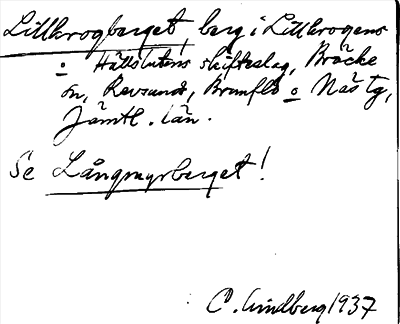 Lillkrogberget, berg i Lillkrogens
o Hällslutens skifteslag, Bräcke
sn, Revsunds, Brunflo o Näs tg,
Jämtl. län.
Se Långmyrberget!
C. Lindberg 1937